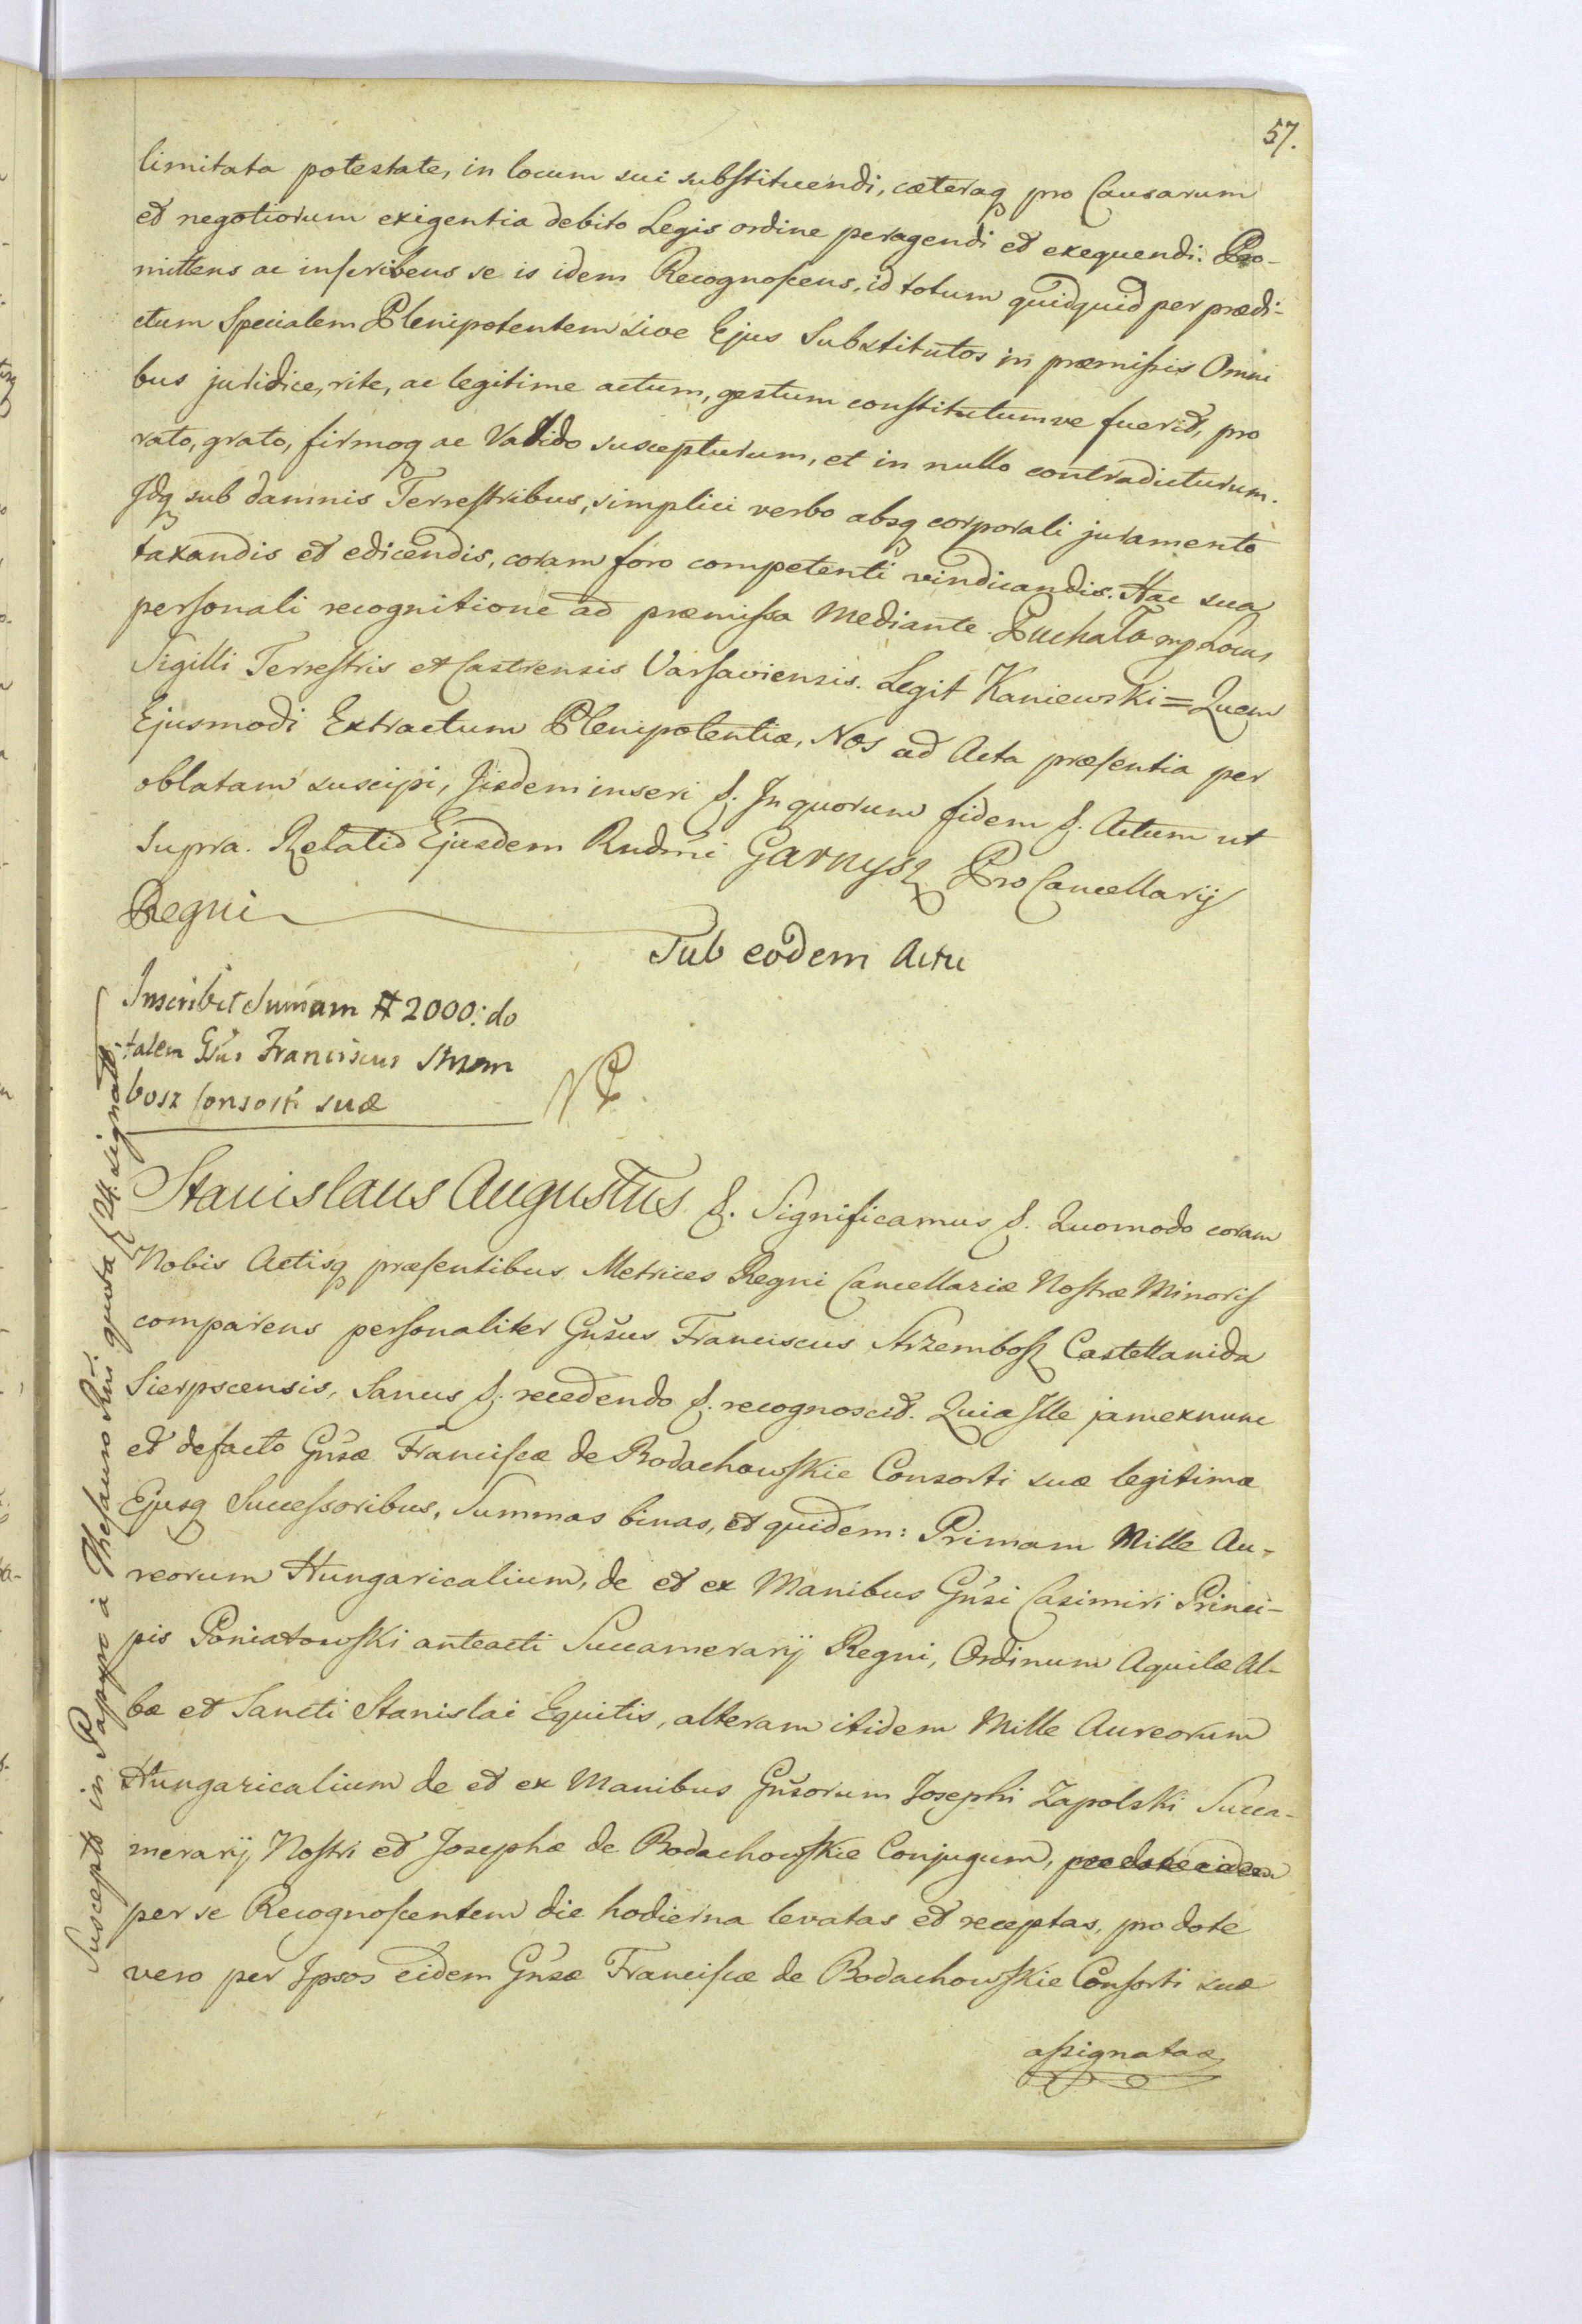 57.
limitata potestate, in locum sui substituendi, cæteraq pro Causarum
et negotiorum exigentia debito Legis ordine peragendi et exequendi. Pro-
mittens ac inscribens se is idem Recognoscens, id totum quidquid per prædi-
ctum Specialem Plenipotentem sive Ejus Substitutos in præmissis Omni
bus juridice, rite, ac legitime actum, gestum constitutumve fuerit, pro
rato, grato, firmoq ac Valido suscepturum, et in nullo contradicturum.
Idq sub damnis Terrestribus, simplici verbo absq corporali juramento
taxandis et edicendis, coram foro competenti vindicandis. Hac sua
personali recognitione ad præmissa Mediante. Puchała mp Locus
Sigilli Terrestris et Castrensis Varsaviensis. Legit Kaniewski = Quem
Ejusmodi Extractum Plenipotentiæ, Nos ad Acta præsentia per
oblatam suscipi, Iisdem inseri &. In quorum fidem &. Actum ut
Supra. Relatio Ejusdem Rndmi Garnysz Pro Cancellarij
Regni
Sub eodem Actu
Inscribit Sumam # 2000: do
talem Gsus Franciscus Strzem
bosz Consorti suæ
Stanislaus Augustus &. Significamus &. Quomodo coram
Nobis Actisq præsentibus Metrices Regni Cancellariæ Nostræ Minoris
comparens personaliter Gnsus Franciscus Strzembosz Castellanida
Sierpscensis, Sanus &. recedendo &. recognoscit. Quia Ille jam ex nunc
et de facto Gnsæ Franciscæ de Bodachowskie Consorti suæ legitimæ
Ejusq Successoribus, Summas binas, et quidem: Primam Mille Au-
reorum Hungaricalium, de et ex Manibus Gnsi Casimiri Princi-
pis Poniatowski anteacti Succamerarij Regni, Ordinum Aquilæ Al-
bæ et Sancti Stanislai Equitis, alteram itidem Mille Aureorum
Hungaricalium de et ex Manibus Gnsorum Josephi Zapolski Succa-
merarij Nostri et Josephæ de Bodachowskie Conjugum,
per se Recognoscentem die hodierna levatas et receptas, pro dote
vero per Ipsos eidem Gnsæ Franciscæ de Bodachowskie Consorti suæ
assignatas
Suscepta in Papyro à Thesauro Rni quota f 24. signato